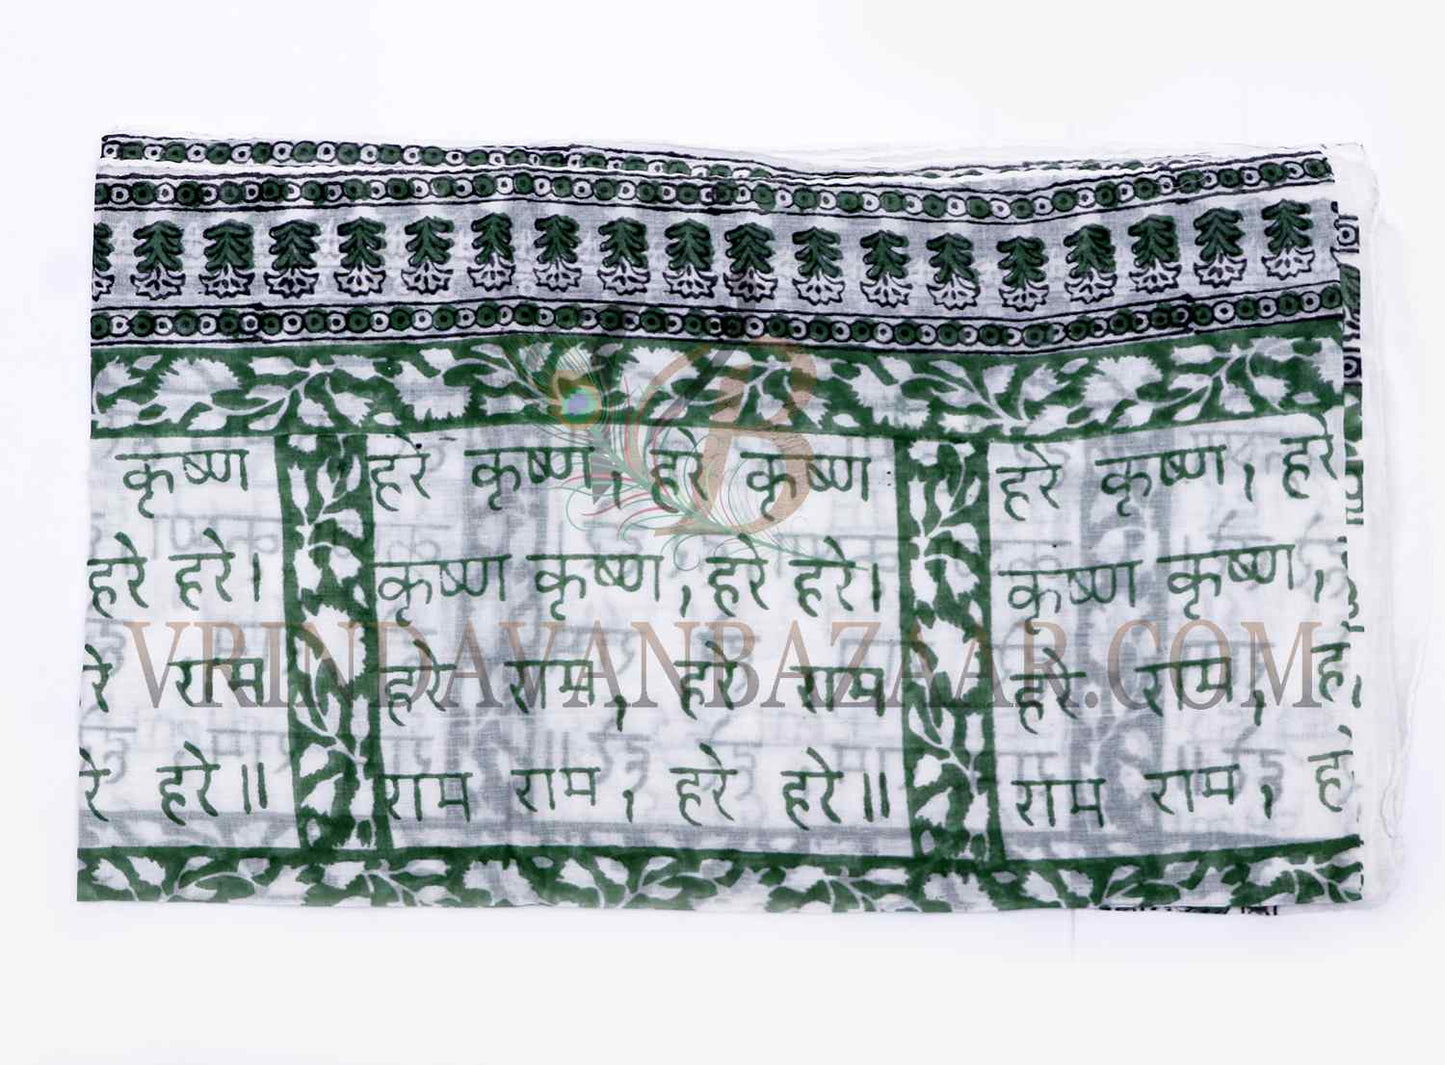 कृष्ण हरे कृष्ण, हरे कृष्ण हरे कृष्ण, हरे
हरे हरे। कृष्ण कृष्ण, हरे हरे। कृष्ण कृष्ण,
राम हरे राम, हरे राम हरे राम,
हरे॥ राम राम, हरे हरे॥ राम राम,
VRINDAVANBAZAAR.COM